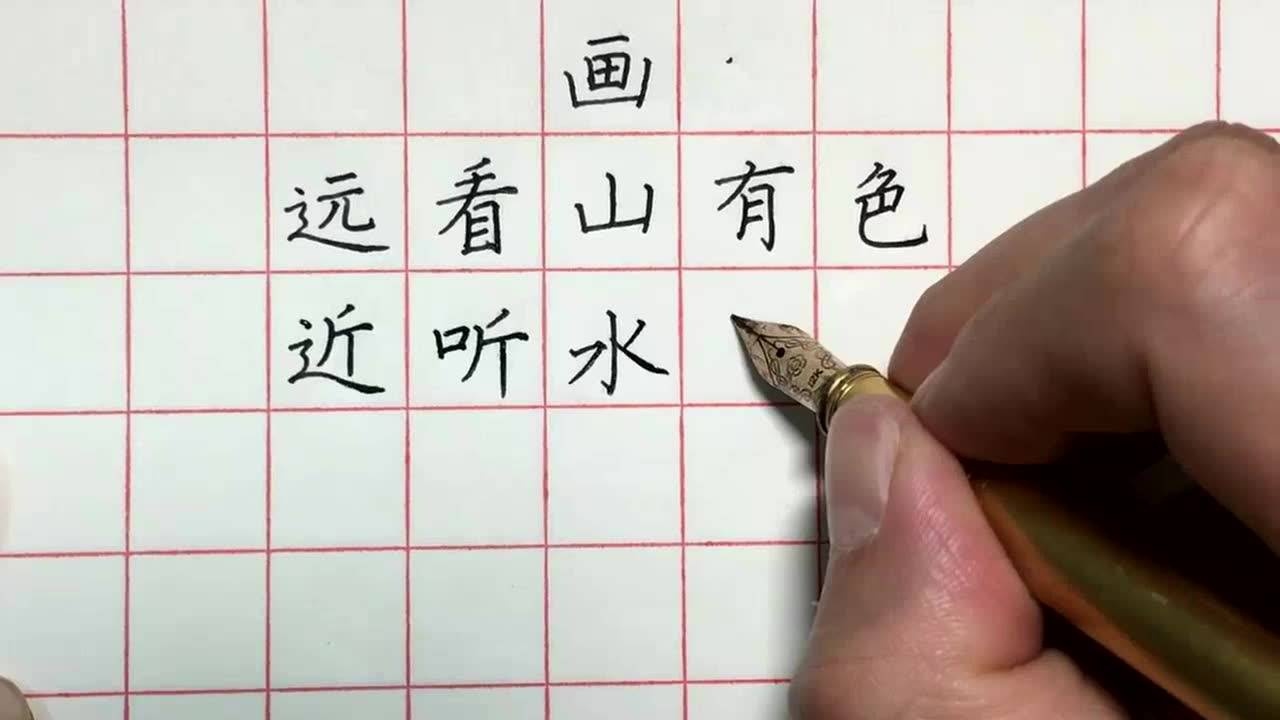 画
远看山有色
近听水
12K